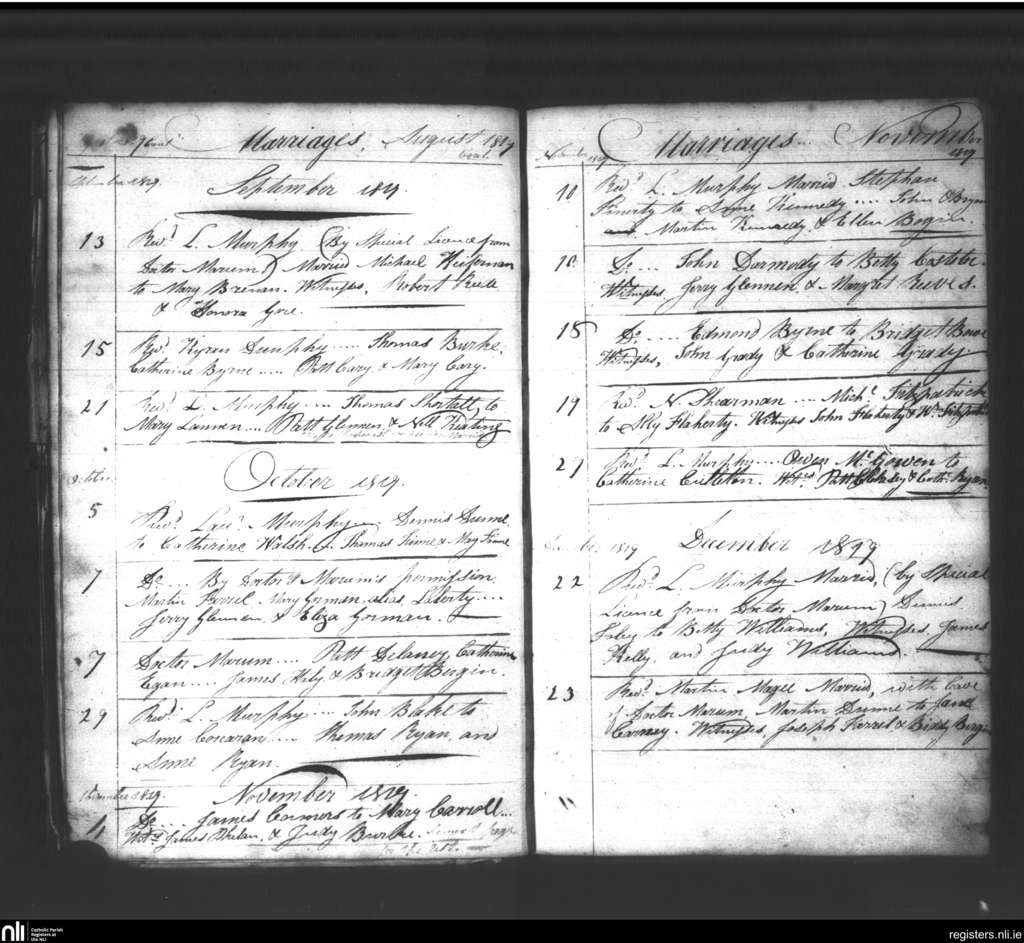 Marriages, August 1819
Cont.
September 1819.
September 1819.
13 Revd. L. Murphy (By Special Licence from
Doctor Marum) Married Michael Heffernan
to Mary Brenan. Witnesses, Robert
& Honora Gore.
15 Revd. Kyran Dunphy .... Thomas Burke,
Catherine Byrne .... Patt Cary & Mary Cary.
21 Revd. L. Murphy .... Thomas Shortall, to
Mary Lannen .... Patt Glennen & Nell Keating
October
October 1819.
5 Revd. Laur. Murphy .... Dennis Dunne,
to Catherine Walsh .. Thomas Finne & Mary Finne
7 Do. .... By Doctor Marum's permission
Martin Mary Gorman alias Laherty ....
Jerry Glennen, & Eliza Gorman.
7 Doctor Marum .... Patt Delaney, Catherine
Egan .... James Hely, & Bridget Bergin.
29 Revd. L. Murphy .... John Blake to
Anne Corcoran .... Thomas Ryan, and
Anne Ryan.
November 1819.
November 1819.
4 Do. .... James Connors to Mary Carroll ..
Wits. James Phelan, & Judy Burke.
for the rest.
Marriages .. November
November 1819 1819
10 Revd. L. Murphy Married Stephen
Finerty to Anne Kennedy .... John O'Bryan
Martin Kennedy & Ellen Bergin.
10 Do. ... John Darmody to Betty Costelo.
Witnesses, Jerry Glennen & Margret Reeves.
18 Do. ..... Edmond Byrne to Bridget Bowe
Witnesses, John Grady & Catherine Grady.
19 Revd. N. Shearman .... Michl. Fitzpatrick
to Flaherty. Witnesses John Flaherty & Wm. Fitzpatrick
27 Revd. L. Murphy .... Owen McGowen to
Catherine Culleton. Wits. Patt & Cath. Ryan.
December 1819 December 1819
22 Revd. L. Murphy Married, (by Special
Licence from Doctor Marum) Dennis
Foley to Betty Williams, Witnesses, James
Kelly, and Judy Williams.
23 Revd. Martin Magee Married, with leave
of Doctor Marum, Martin Dunne to Jane
Carney. Witnesses, Joseph Farrel & Biddy Bergin
nli Catholic Parish
Registers at
the NLI
registers.nli.ie